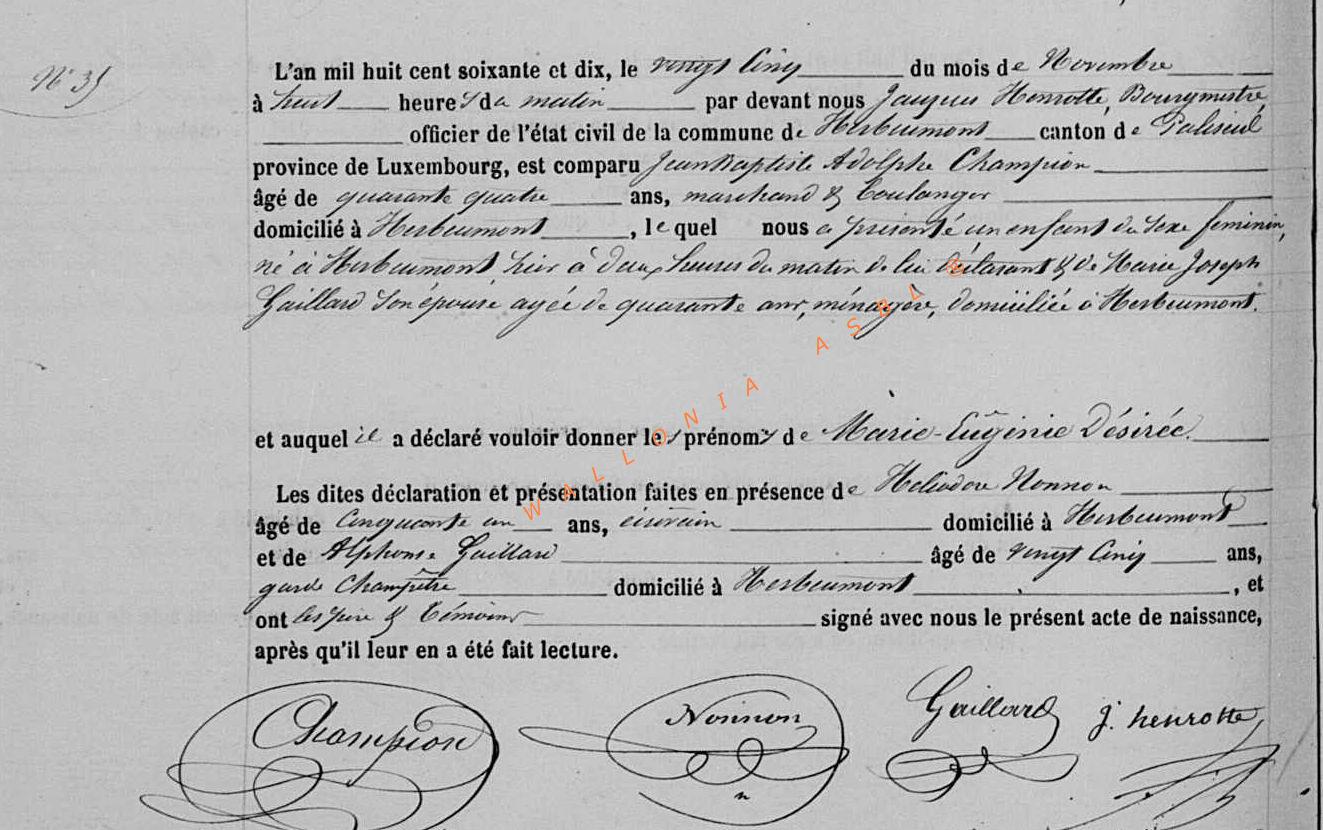 N° 35
L'an mil huit cent soixante et dix, le vingt Cinq du mois de Novembre
à huit heures du matin par devant nous Jacques Henrotte, Bourgmestre,
officier de l'état civil de la commune de Herbeumont canton de Paliseul
province de Luxembourg, est comparu Jean Baptiste Adolphe Champion
âgé de quarante quatre ans, marchand & boulanger
domicilié à Herbeumont, lequel nous a présenté un enfant du sexe feminin,
né à Herbeumont hier à deux heures du matin de lui déclarant & de Marie Joseph
Gaillard son épouse agée de quarante ans, ménagère, domiciliée à Herbeumont.
et auquel il a déclaré vouloir donner les prénoms de Marie-Eugénie Désirée.
Les dites déclaration et présentation faites en présence de Héliodore Nonnon
âgé de Cinquante un ans, écrivain domicilié à Herbeumont
et de Alphonse Gaillard âgé de vingt Cinq ans,
garde Champêtre domicilié à Herbeumont, et
ont les père & témoins signé avec nous le présent acte de naissance,
après qu'il leur en a été fait lecture.
Champion Nonnon Gaillard J. henrotte
WALLONIA ASBL